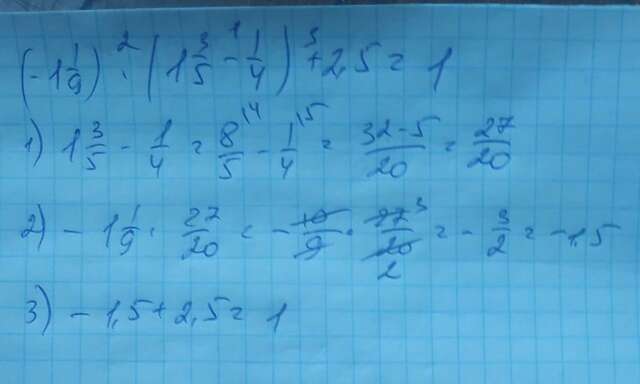 (-1 1/9) ² · (1 3/5 -¹ 1/4) +³ 2,5 = 1
1) 1 3/5 - 1/4 = 8/5 \4 - 1/4 \5 = 32-5/20 = 27/20
2) - 1 1/9 · 27/20 = - 10/9 · 27/20 3 2 = - 3/2 = -1,5
3) - 1,5 + 2,5 = 1